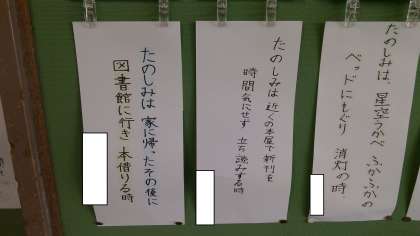 たのしみは、星空うかべ ふかふかの
ベッドにもぐり 消灯の時
たのしみは 近くの本屋で新刊を
時間気にせず 立ち読みする時
たのしみは 家に帰ったその後に
図書館に行き 本借りる時